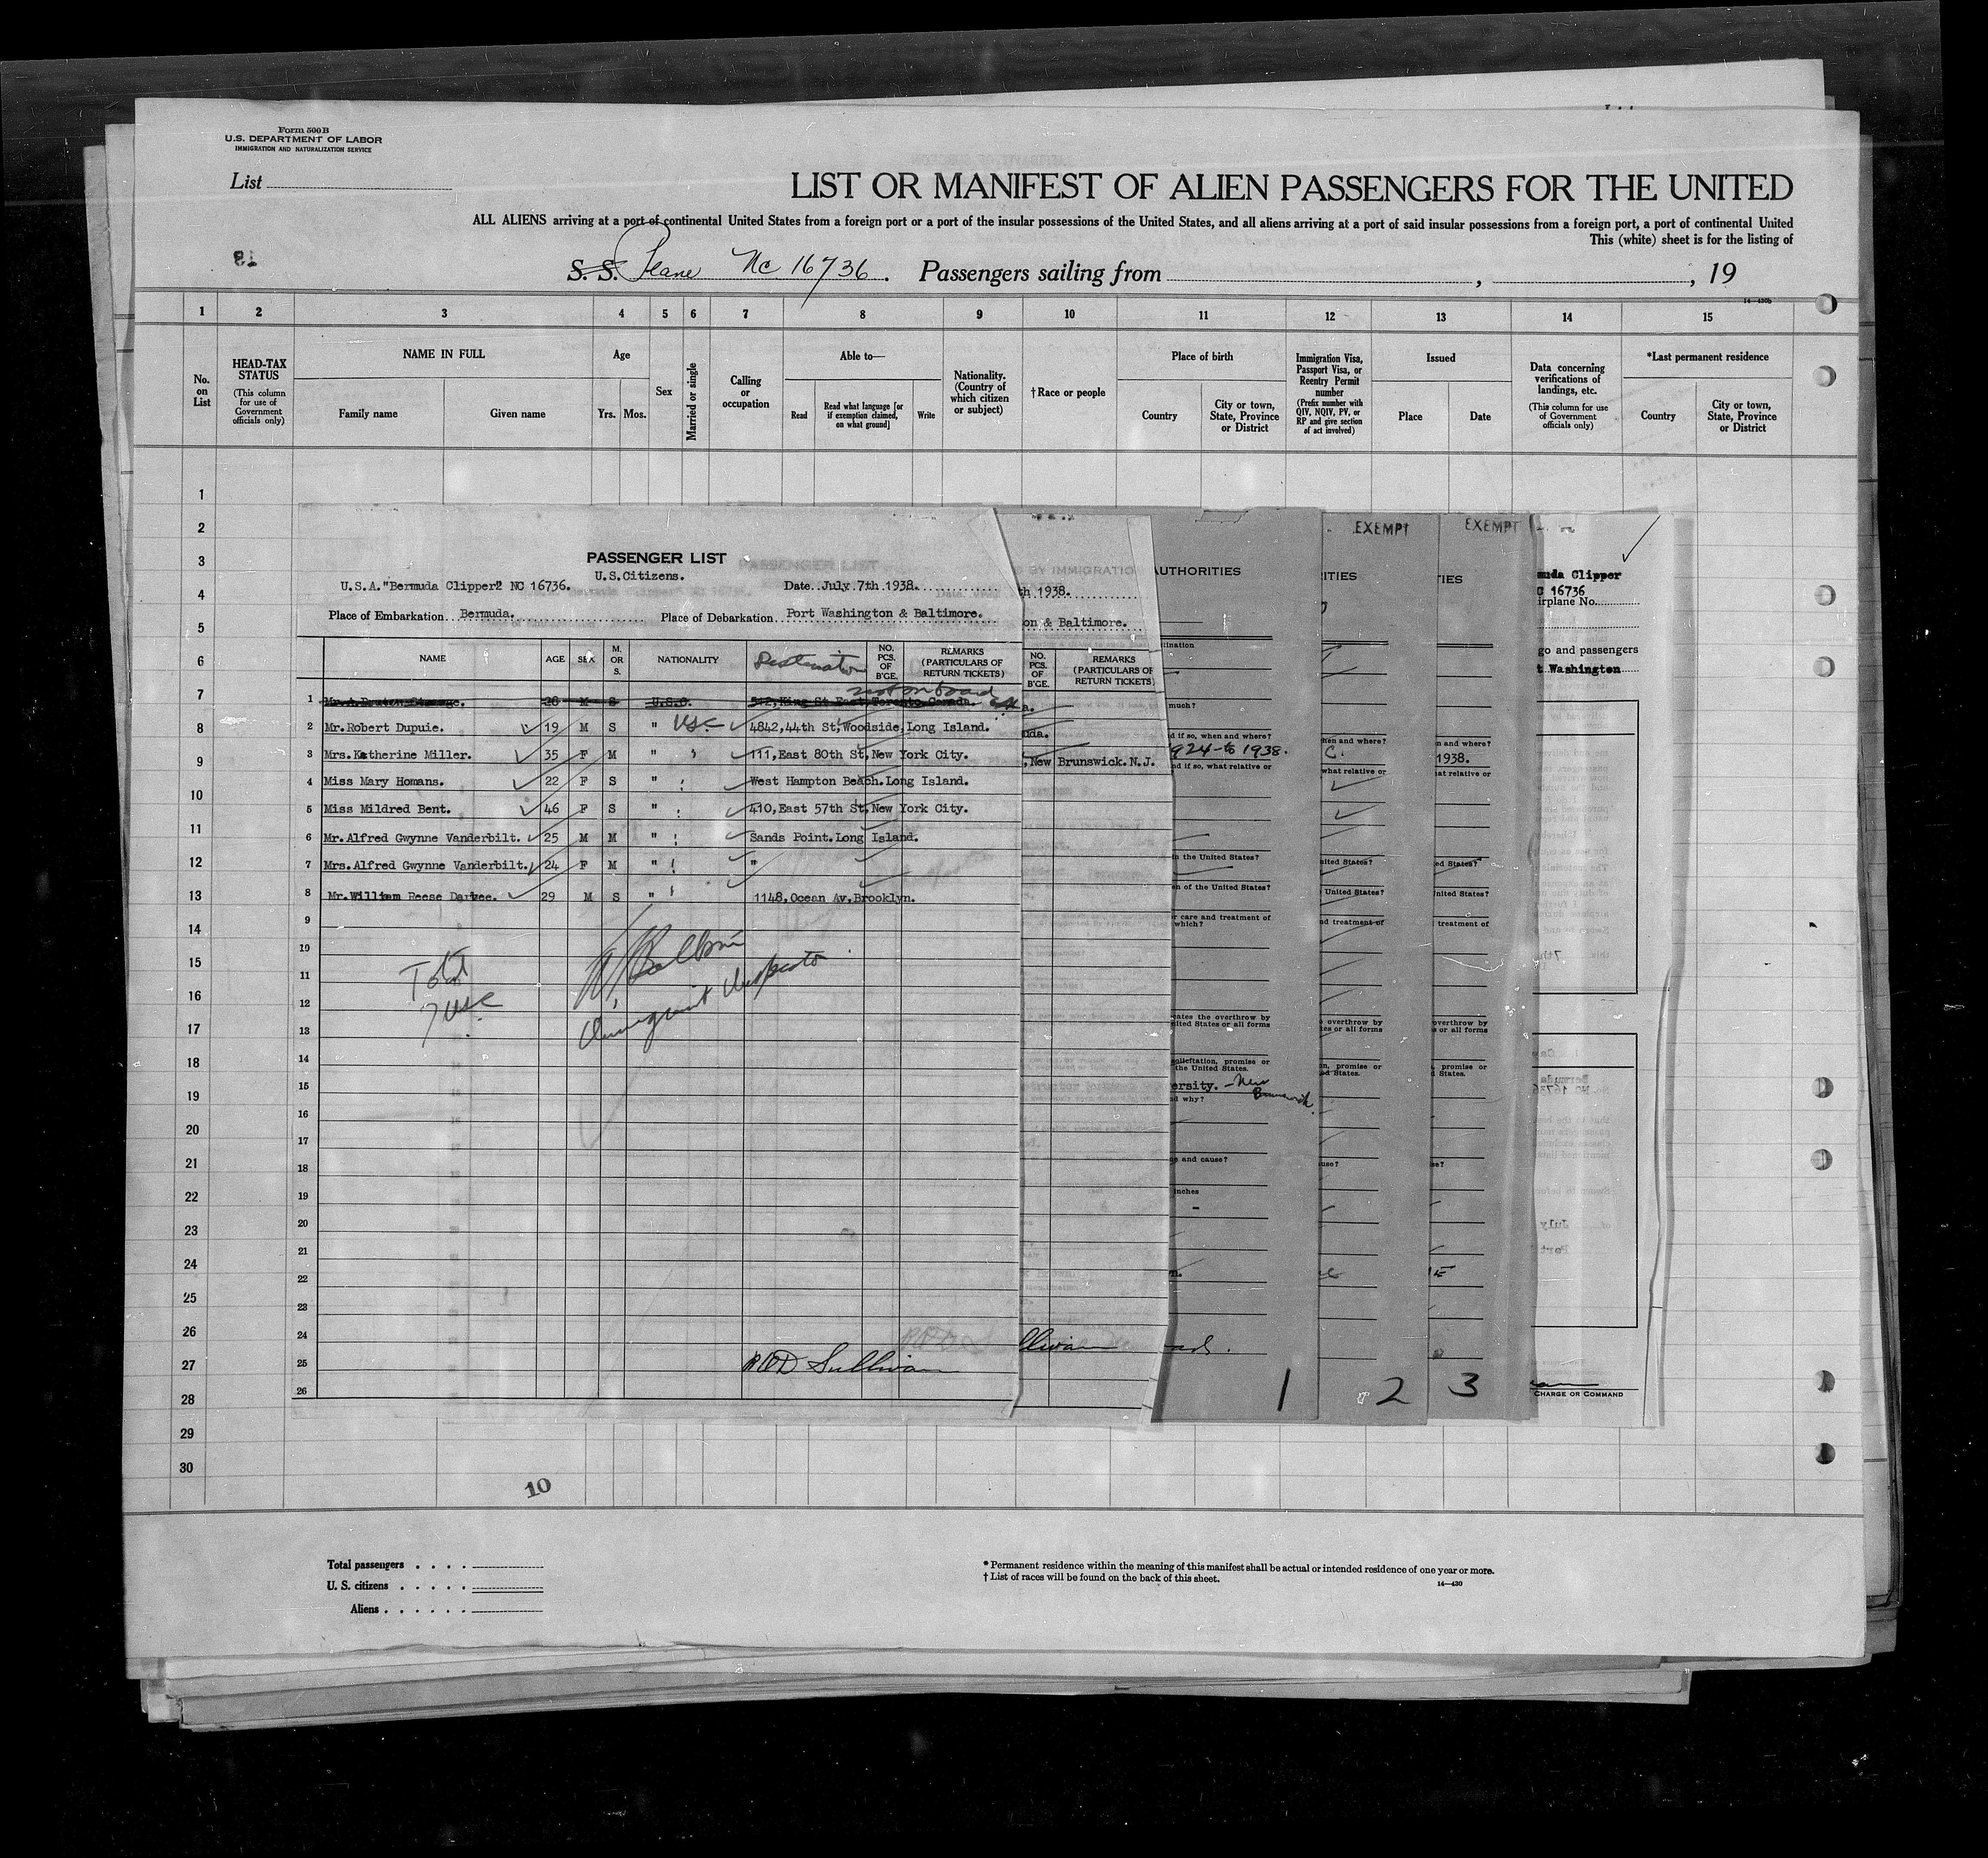 Form 500B
U.S. DEPARTMENT OF LABOR
IMMIGRATION AND NATURALIZATION SERVICE
List
LIST OR MANIFEST OF ALIEN PASSENGERS FOR THE UNITED
ALL ALIENS arriving at a port of continental United States from a foreign port or a port of the insular possessions of the United States, and all aliens arriving at a port of said insular possessions from a foreign port, a port of continental United
This (white) sheet is for the listing of
S. S. Plane Nc 16736. Passengers sailing from , , 19
14—430b
1 2 3 4 5 6 7 8 9 10 11 12 13 14 15
No. on List
HEAD-TAX STATUS
(This column for use of Government officials only)
NAME IN FULL
Family name Given name
Age
Yrs. Mos.
Sex
Married or single
Calling or occupation
Able to—
Read
Read what language [or if exemption claimed, on what ground]
Write
Nationality. (Country of which citizen or subject)
†Race or people
Place of birth
Country
City or town, State, Province or District
Immigration Visa, Passport Visa, or Reentry Permit number
(Prefix number with QIV, NQIV, PV, or RP and give section of act involved)
Issued
Place Date
Data concerning verifications of landings, etc.
(This column for use of Government officials only)
*Last permanent residence
Country
City or town, State, Province or District
1
2
3
4
5
6
7
8
9
10
11
12
13
14
15
16
17
18
19
20
21
22
23
24
25
26
27
28
29
30
PASSENGER LIST
U.S.Citizens.
U.S.A."Bermuda Clipper" NC 16736. Date. July 7th 1938.
Place of Embarkation Bermuda. Place of Debarkation Port Washington & Baltimore.
NAME AGE SEX M. OR S. NATIONALITY Destination NO. PCS. OF B'GE. REMARKS (PARTICULARS OF RETURN TICKETS)
not on board
1 28 M S U.S.C. 512, King St East, Toronto. Canada.
2 Mr. Robert Dupuie. 19 M S " USC 4842, 44th St, Woodside, Long Island.
3 Mrs. Katherine Miller. 35 F M " 111, East 80th St, New York City.
4 Miss Mary Homans. 22 F S " West Hampton Beach. Long Island.
5 Miss Mildred Bent. 46 F S " 410, East 57th St, New York City.
6 Mr. Alfred Gwynne Vanderbilt. 25 M M " Sands Point. Long Island.
7 Mrs. Alfred Gwynne Vanderbilt. 24 F M " "
8 Mr. William Reese 29 M S " 1148, Ocean Av, Brooklyn.
9
10
11
12
13
14
15
16
17
18
19
20
21
22
23
24
25
26
Total
7 USC
Immigrant Inspector
ROD Sullivan
BY IMMIGRATION
th 1938.
on & Baltimore.
NO. PCS. OF B'GE.
REMARKS (PARTICULARS OF RETURN TICKETS)
, New Brunswick. N.J.
AUTHORITIES
much?
d if so, when and where?
924-to 1938.
nd if so, what relative or
in the United States?
en of the United States?
r care and treatment of
which?
cates the overthrow by
nited States or all forms
promise or
the United States.
ersity. - New Brunswick.
d why?
e and cause?
inches
1
EXEMPT
ITIES
hen and where?
C.
what relative or
nited States?
United States?
nd treatment of
overthrow by
tes or all forms
n, promise or
ed States.
use?
2
EXEMPT
TIES
n and where?
1938.
at relative or
ed States?
nited States?
treatment of
overthrow by
s or all forms
, promise or
d States.
se?
3
muda Clipper
C 16736
irplane No.
go and passengers
t Washington
CHARGE OR COMMAND
10
Total passengers
U. S. citizens
Aliens
* Permanent residence within the meaning of this manifest shall be actual or intended residence of one year or more.
† List of races will be found on the back of this sheet.
14—430